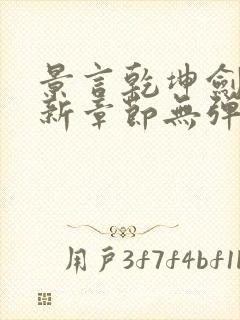 景言乾坤劍
新章節無彈
用戶3f7f4bf1